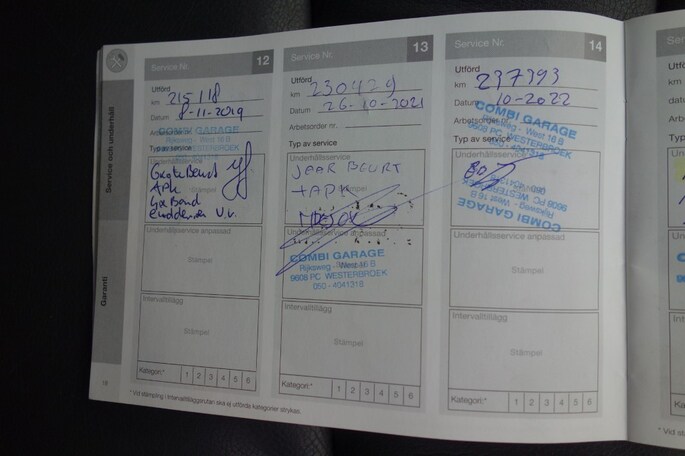 Service och underhåll
Garanti
18
Service Nr. 12
Utförd
km 215118
Datum 8-11-2019
Arbetsorder nr.
COMBI GARAGE
Typ av service
Underhållsservice
Grote Beurt
APK
Underhållsservice anpassad
Stämpel
Intervalltillägg
Stämpel
Kategori:* 1 2 3 4 5 6
* Vid stämpling i Intervalltilläggsrutan ska ej utförda kategorier strykas.
Service Nr. 13
Utförd
km 230429
Datum 26-10-2021
Arbetsorder nr.
Typ av service
Underhållsservice
JAAR BEURT
+APK
Underhållsservice anpassad
COMBI GARAGE
Rijksweg - West 16 B
9608 PC WESTERBROEK
050 - 4041318
Intervalltillägg
Stämpel
Kategori:* 1 2 3 4 5 6
Service Nr. 14
Utförd
km 237393
Datum 10-2022
Arbetsorder
COMBI GARAGE
Rijksweg - West 16 B
9608 PC WESTERBROEK
050 - 4041318
Typ av service
Underhållsservice
COMBI GARAGE
Rijksweg - West 16 B
9608 PC WESTERBROEK
Underhållsservice anpassad
Stämpel
Intervalltillägg
Stämpel
Kategori:* 1 2 3 4 5 6